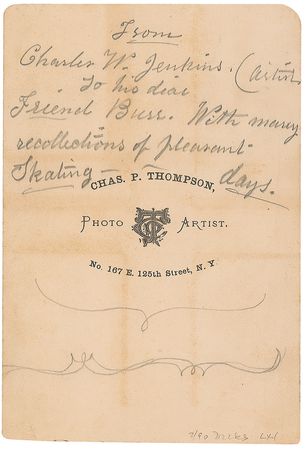 From
Charles W. Jenkins. (artist
To his dear
Friend Burr. With many
recollections of pleasant
Skating — days.
CHAS. P. THOMPSON,
PHOTO ARTIST.
No. 167 E. 125th Street, N. Y.